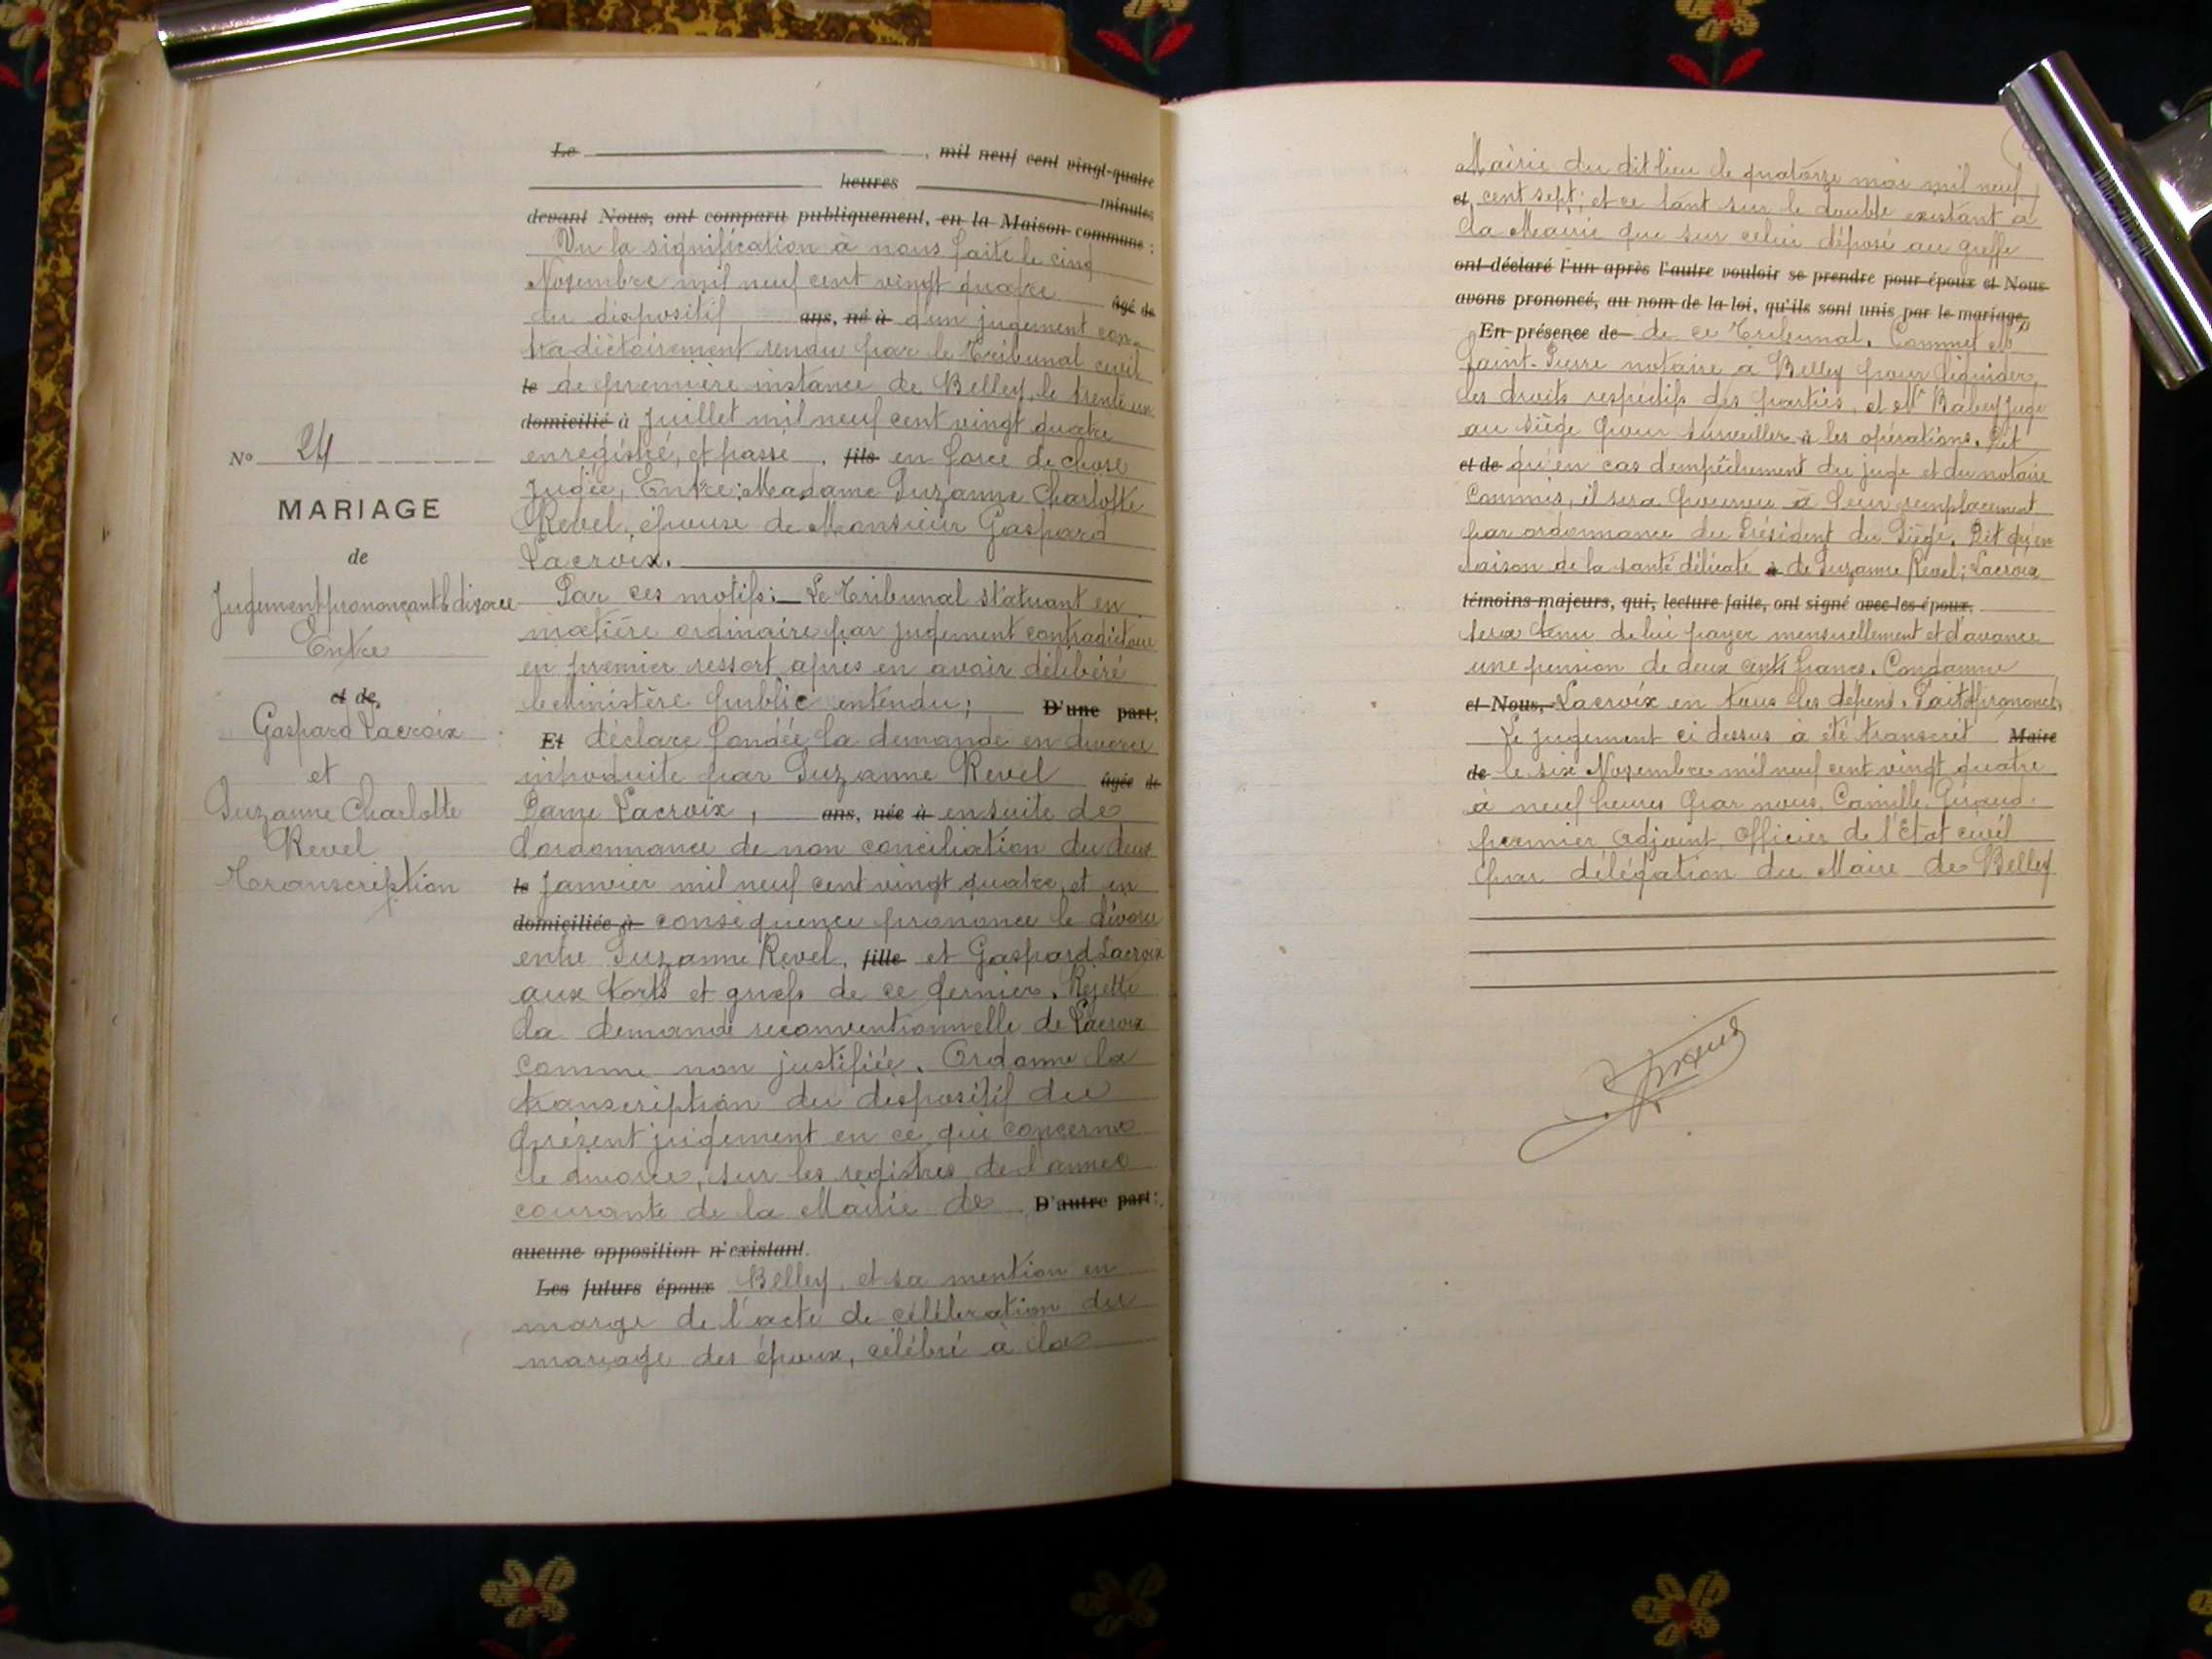 Le , mil neuf cent vingt-quatre
heures minutes
devant Nous, ont comparu publiquement, en la Maison commune :
Vu la signification à nous faite le cinq
Novembre mil neuf cent vingt quatre âgé de
du dispositif ans, né à d'un jugement con-
tradictoirement rendu par le Tribunal civil
le de première instance de Belley, le trente un
domicilié à Juillet mil neuf cent vingt quatre
enregistré, et passé , fils en force de chose
jugée, Entre: Madame Suzanne Charlotte
Revel, épouse de Monsieur Gaspard
Lacroix.
Nº 24
MARIAGE
de
Jugement prononçant le divorce
Entre
et de,
Gaspard Lacroix
et
Suzanne Charlotte
Revel
Transcription
Par ces motifs: Le Tribunal statuant en
matière ordinaire par jugement contradictoire
en premier ressort après en avoir délibéré
le Ministère public entendu; D'une part;
Et déclare fondée la demande en divorce
introduite par Suzanne Revel âgée de
Dame Lacroix, ans, née à ensuite de
l'ordonnance de non conciliation du deux
le Janvier mil neuf cent vingt quatre, et en
domiciliée à conséquence prononce le divorce
entre Suzanne Revel, fille et Gaspard Lacroix
aux torts et griefs de ce dernier. Rejette
la demande reconventionnelle de Lacroix
comme non justifiée. Ordonne la
transcription du dispositif du
présent jugement en ce qui concerne
le divorce, sur les registres de l'année
courante de la Mairie de D'autre part:
aucune opposition n'existant.
Les futurs époux Belley, et sa mention en
marge de l'acte de célébration du
mariage des époux, célébré à la
Mairie du dit lieu le quatorze mai mil neuf
et cent sept; et ce tant sur le double existant à
la Mairie que sur celui déposé au greffe
ont déclaré l'un après l'autre vouloir se prendre pour époux et Nous
avons prononcé, au nom de la loi, qu'ils sont unis par le mariage,
En présence de de ce Tribunal. Commet Me
Saint-Pierre notaire à Belley pour liquider
les droits respectifs des parties, et Mr Babey Juge
au siège pour surveiller à les opérations. Dit
et de qu'en cas d'empêchement du juge et du notaire
commis, il sera pourvu à leur remplacement
par ordonnance du Président du Siège. Dit qu'en
raison de la santé délicate à de Suzanne Revel; Lacroix
témoins majeurs, qui, lecture faite, ont signé avec les époux,
sera tenu de lui payer mensuellement et d'avance
une pension de deux cents francs. Condamne
et Nous, Lacroix en tous les dépens. Fait et prononcé,
Le jugement ci dessus à été transcrit Maire
de le six Novembre mil neuf cent vingt quatre
à neuf heures par nous, Camille Giraud
premier adjoint Officier de l'Etat civil
par délégation du Maire de Belley